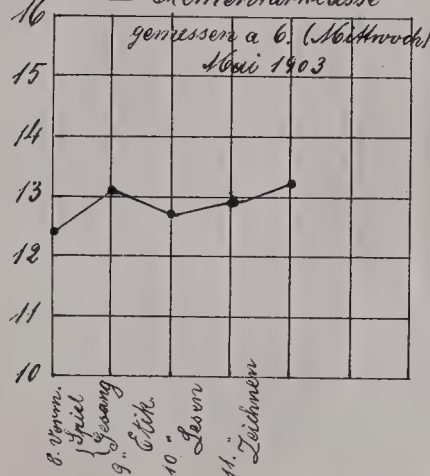 Elementarklasse
gemessen a 6. (Mittwoch)
Mai 1903
16
15
14
13
12
11
10
8. Vorm.
{ Spiel
{ Gesang
9 " Etik.
10 " Lesen
11. " Zeichnen